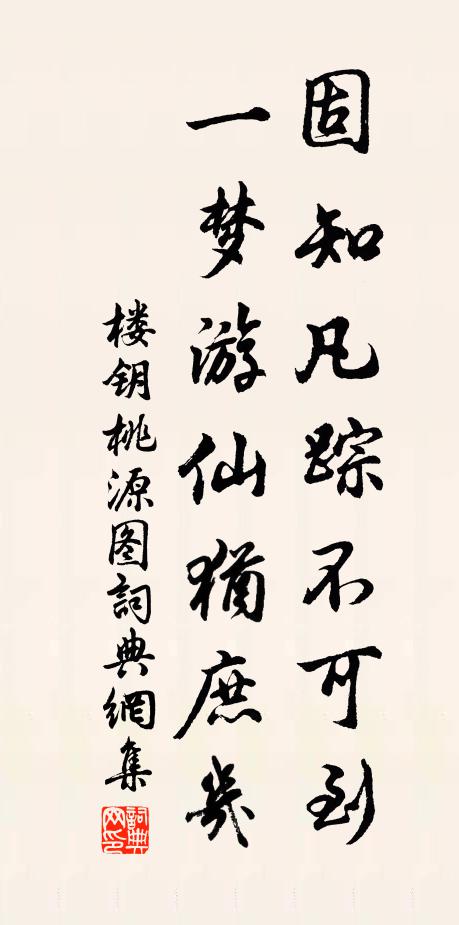 固知凡踪不可到
一梦游仙犹庶几
楼钥桃源图詞典網集
詞典网印